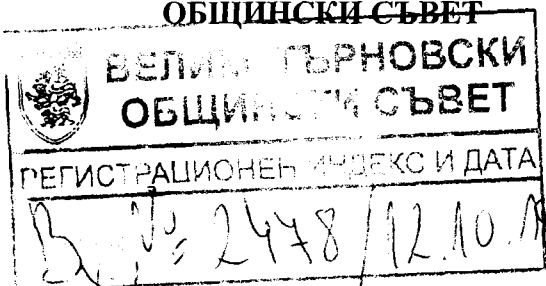 ОБЩИНСКИ СЪВЕТ
ВЕЛИКО ТЪРНОВСКИ
ОБЩИНСКИ СЪВЕТ
РЕГИСТРАЦИОНЕН ИНДЕКС И ДАТА
№ 2478/12.10.